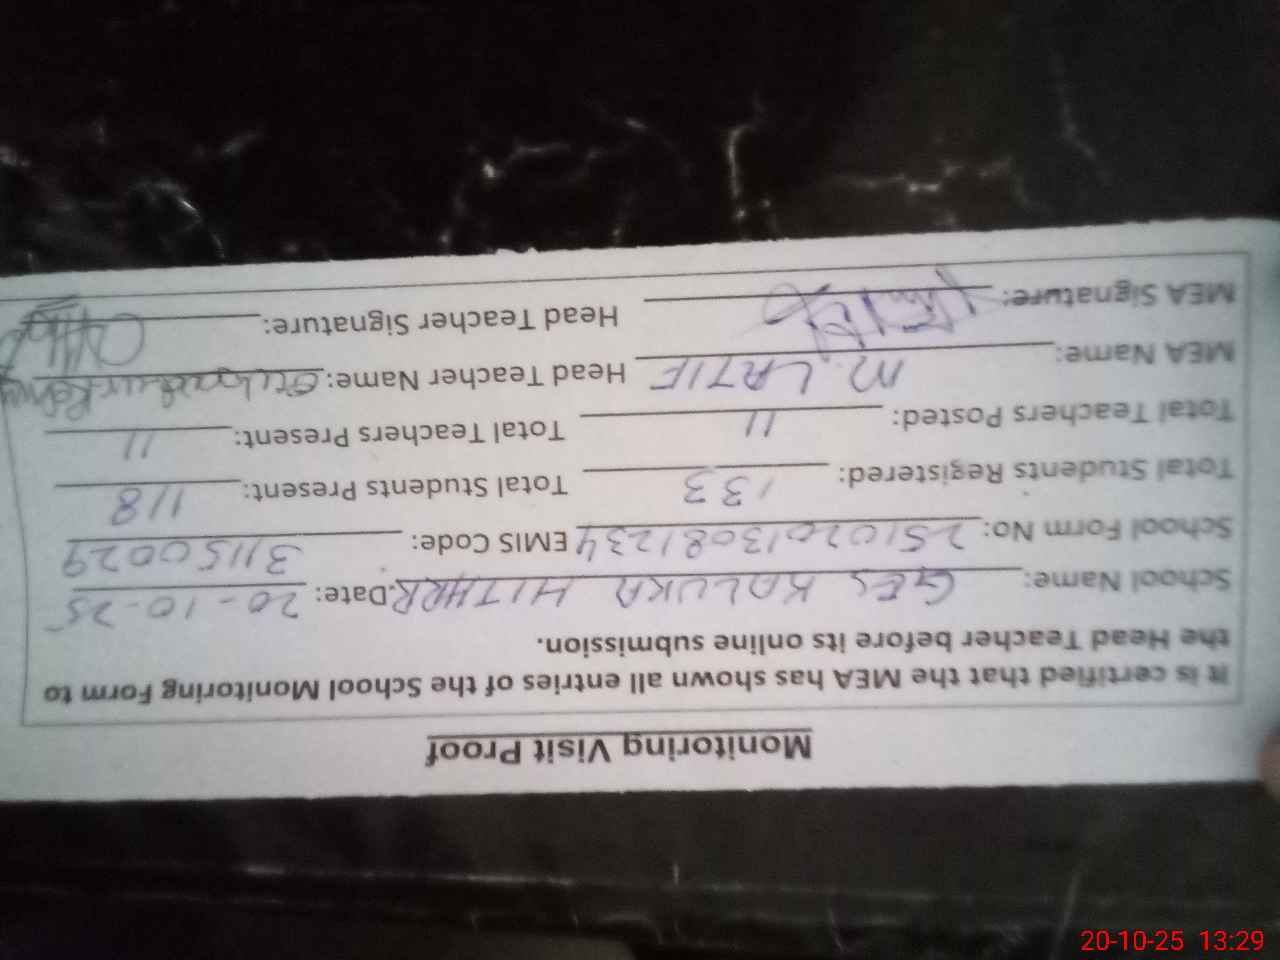 Monitoring Visit Proof
It is certified that the MEA has shown all entries of the School Monitoring Form to
the Head Teacher before its online submission.
School Name: GES KALUKA HITHAR. Date: 20-10-25
School Form No: 25102013081234 EMIS Code: 31150029
Total Students Registered: 133 Total Students Present: 118
Total Teachers Posted: 11 Total Teachers Present: 11
MEA Name: M. LATIF Head Teacher Name:
MEA Signature: Head Teacher Signature:
20-10-25 13:29